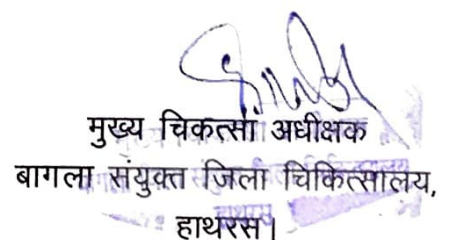 मुख्य चिकत्सा अधीक्षक
बागला संयुक्त जिला चिकित्सालय,
हाथरस।